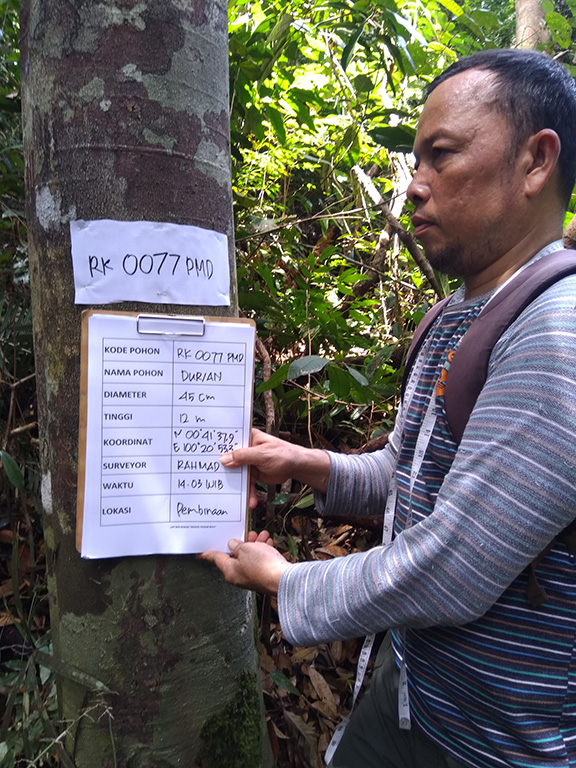 RK 0077 PMD
KODE POHON RK 0077 PMD
NAMA POHON DURIAN
DIAMETER 45 cm
TINGGI 12 m
KOORDINAT N 00°41'37,9" E 100°20'53,3"
SURVEYOR RAHMAD
WAKTU 14.03 WIB
LOKASI Pembinaan